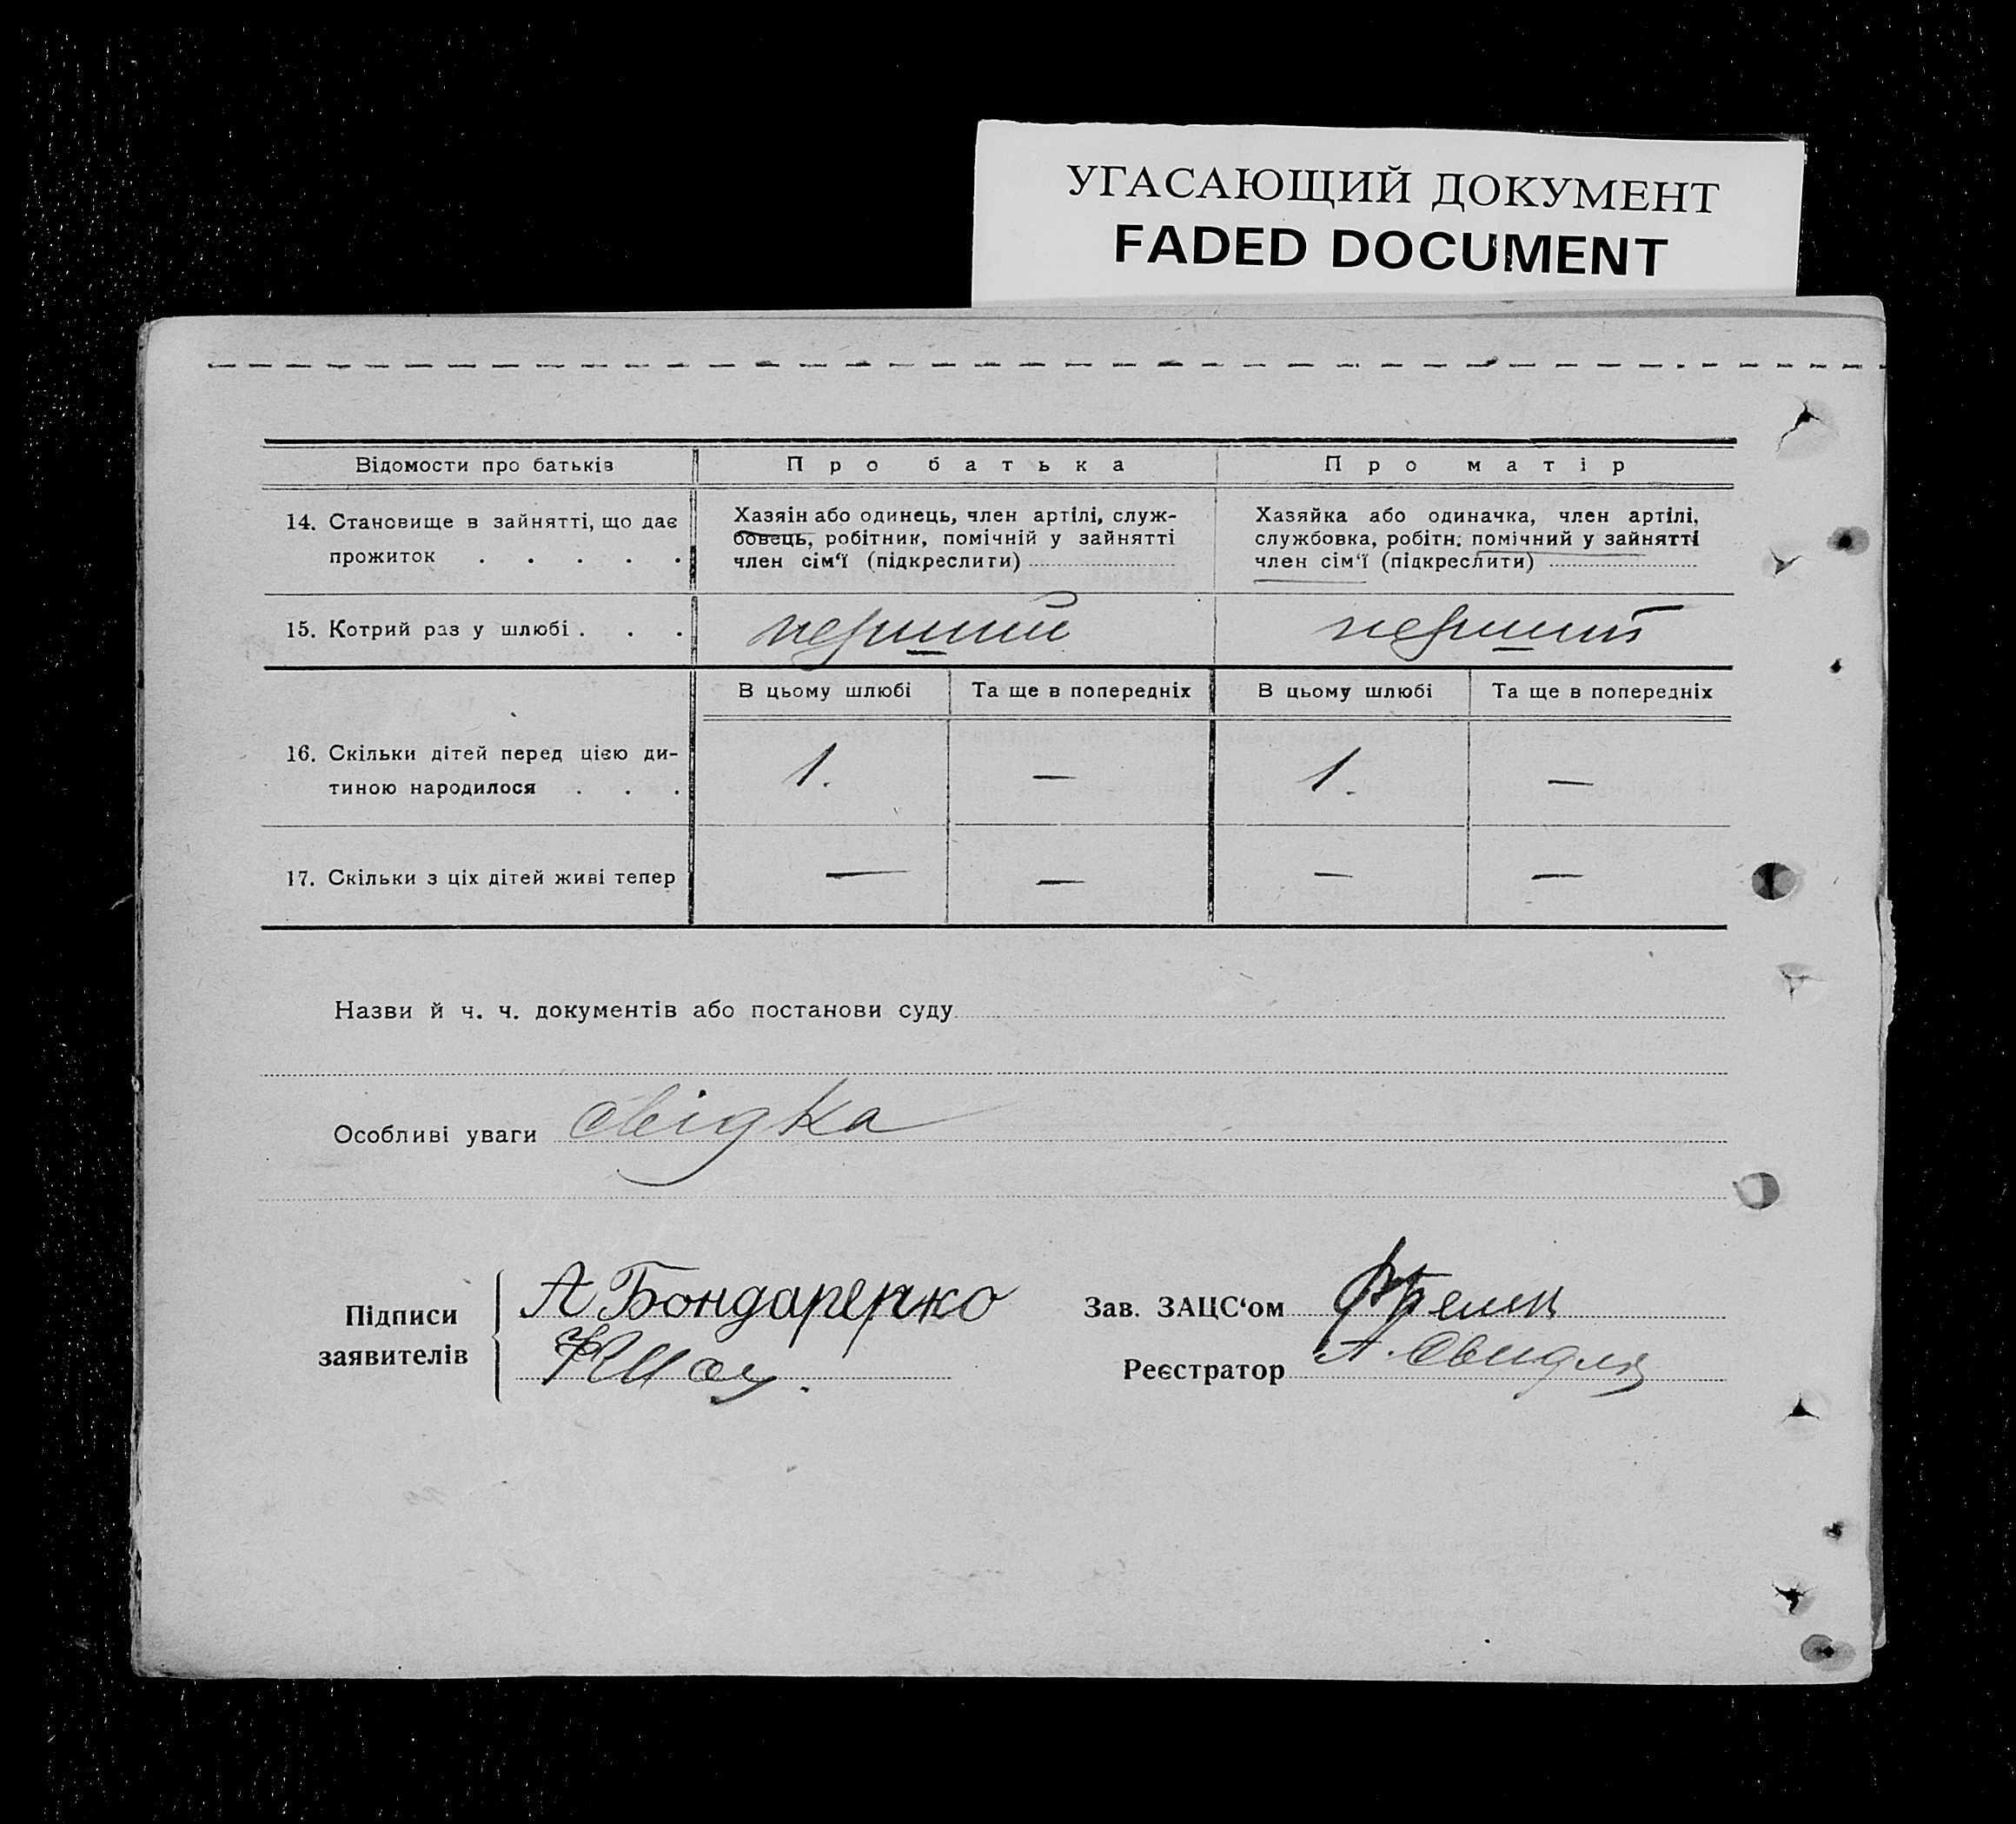 УГАСАЮЩИЙ ДОКУМЕНТ
FADED DOCUMENT
Відомости про батьків
Про батька
Про матір
14. Становище в зайнятті, що дає
прожиток . . . . .
Хазяін або одинець, член артілі, служ-
бовець, робітник, помічній у зайнятті
член сім‘ї (підкреслити)
Хазяйка або одиначка, член артілі,
службовка, робітн. помічний у зайнятті
член сім‘ї (підкреслити)
15. Котрий раз у шлюбі . . .
перший
перший
В цьому шлюбі
Та ще в попередніх
В цьому шлюбі
Та ще в попередніх
16. Скільки дітей перед цією ди-
тиною народилося . . .
1.
—
1.
—
17. Скільки з ціх дітей живі тепер
—
—
—
—
Назви й ч. ч. документів або постанови суду
Особливі уваги свідка
Підписи
заявителів
А Бондаренко
Зав. ЗАЦС‘ом
Реєстратор А.